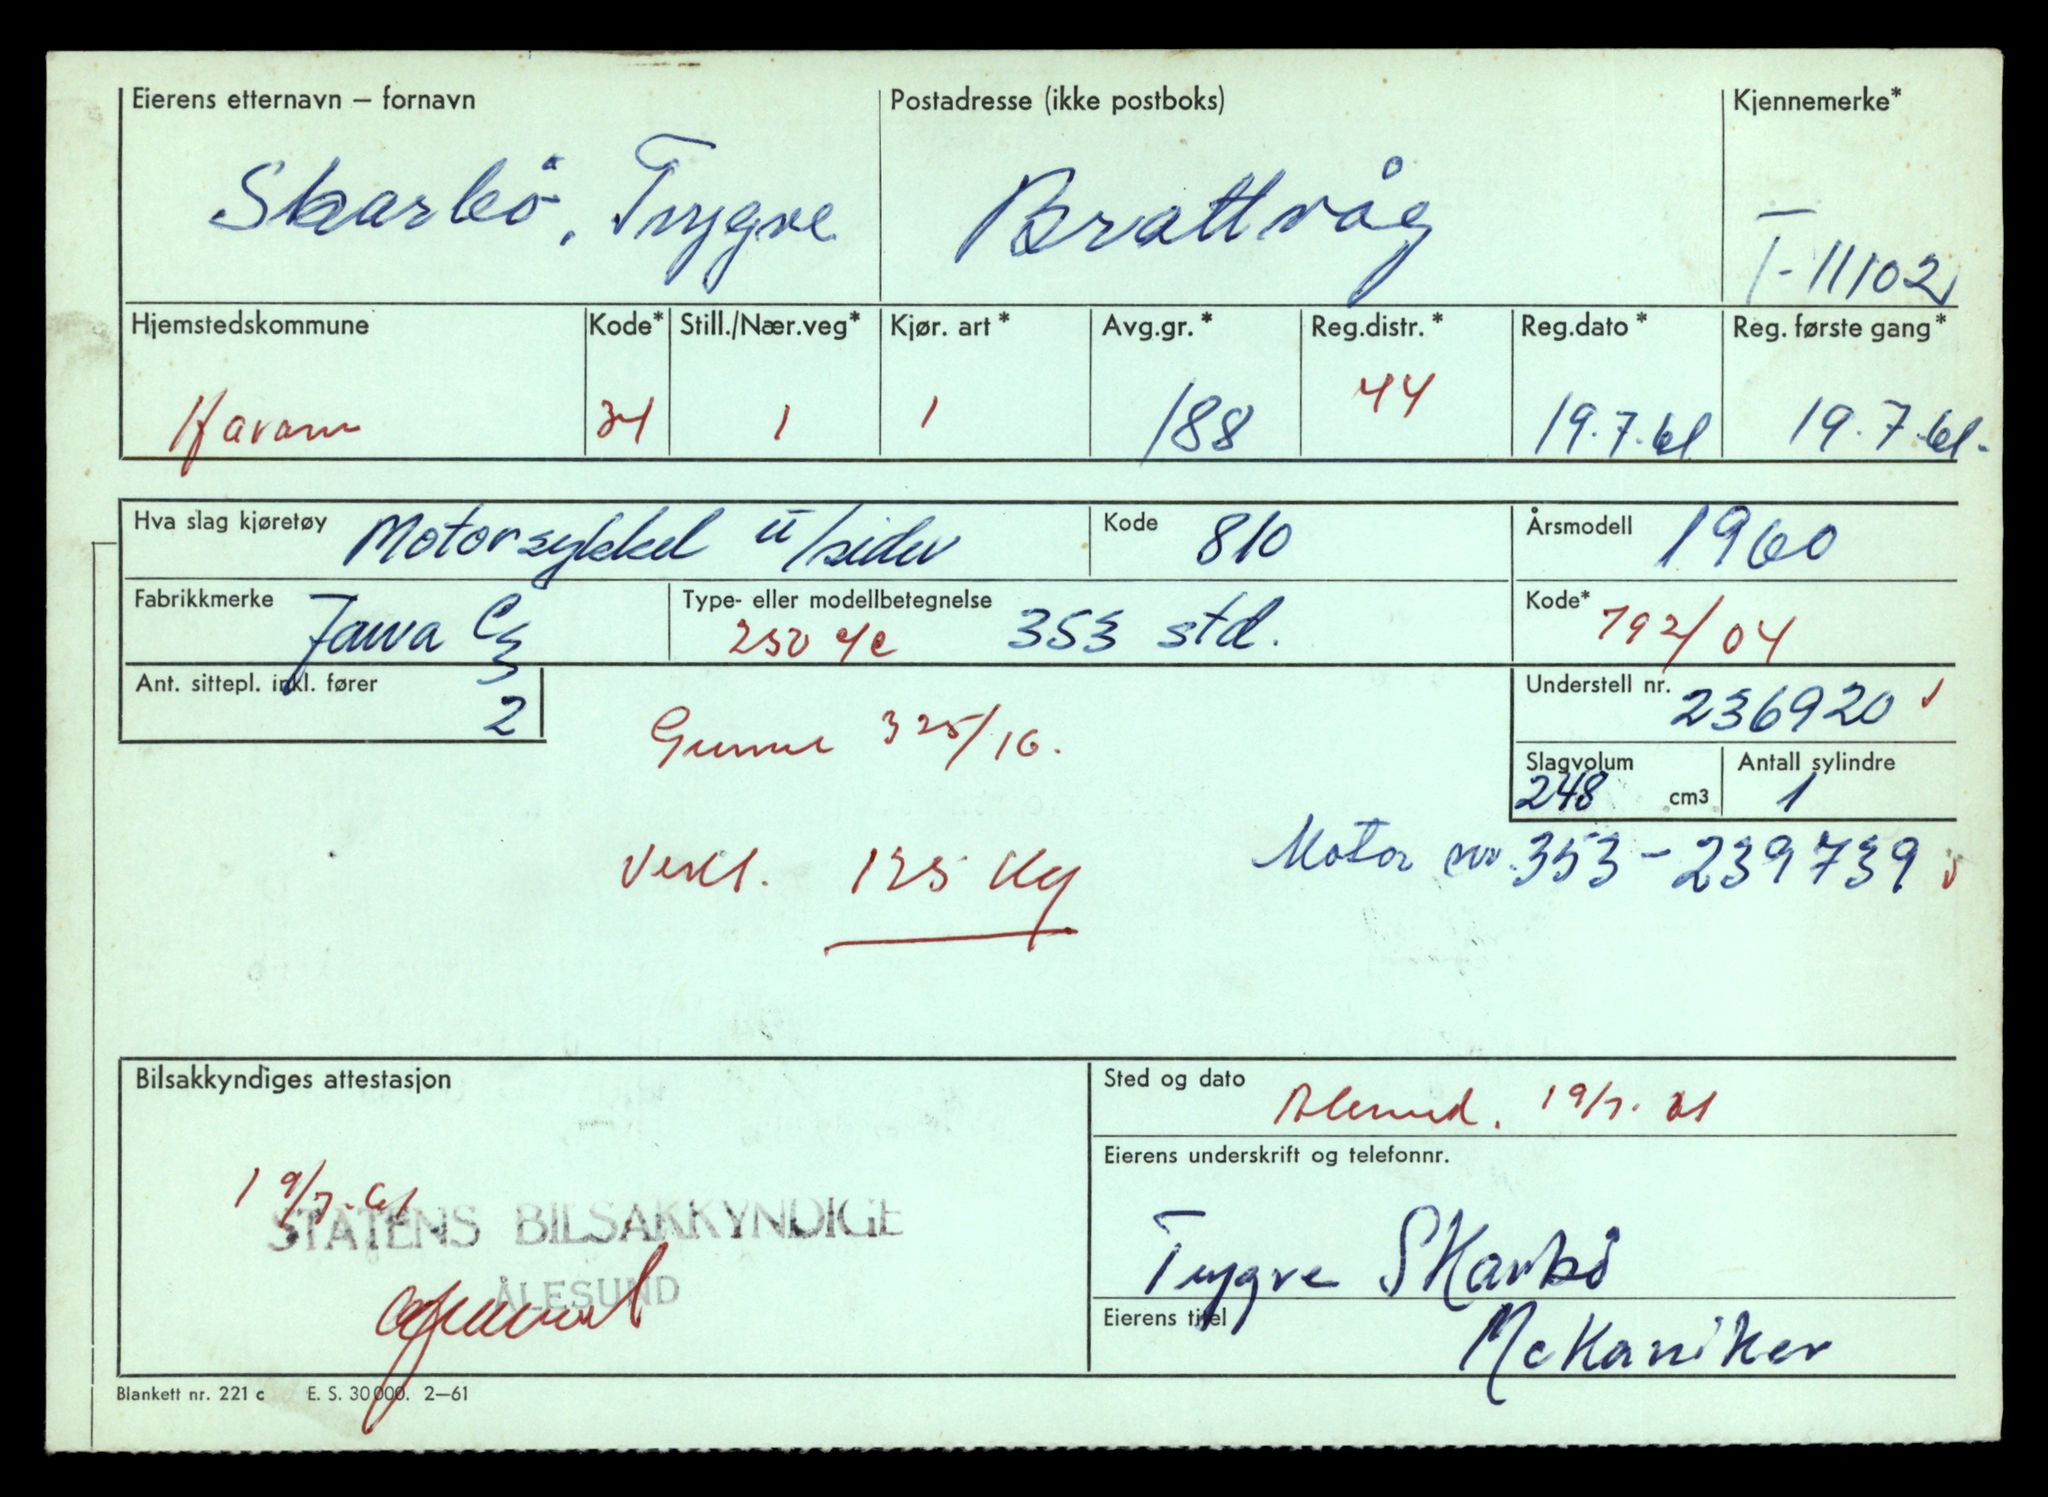 Eierens etternavn – fornavn Postadresse (ikke postboks) Kjennemerke*
Skarbö, Trygve Brattvåg T-11102
Hjemstedskommune Kode* Still./Nær.veg* Kjør. art* Avg.gr.* Reg.distr.* Reg.dato* Reg. første gang*
Haram 34 1 1 188 44 19.7.61 19.7.61.
Hva slag kjøretøy Motorsykkel u/sidev Kode 810 Årsmodell 1960
Fabrikkmerke Jawa Cz Type- eller modellbetegnelse 250 cc 353 std. Kode* 792/04
Ant. sittepl. inkl. fører 2 Understell nr. 236920
Gummi 325/16.
Slagvolum 248 cm3 Antall sylindre 1
Vekt. 125 Kg Motor nr. 353-239739
Bilsakkyndiges attestasjon Sted og dato Ålesund. 19/7. 61
Eierens underskrift og telefonnr.
19/7-61
STATENS BILSAKKYNDIGE
ÅLESUND
Trygve Skarbö
Eierens titel Mekaniker
Blankett nr. 221 c E. S. 30 000. 2—61